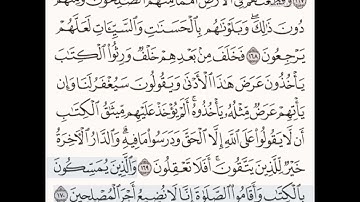 ١٦٧ وَقَطَّعْنَٰهُمْ فِى ٱلْأَرْضِ أُمَمًا مِّنْهُمُ ٱلصَّٰلِحُونَ وَمِنْهُمْ
دُونَ ذَٰلِكَ وَبَلَوْنَٰهُم بِٱلْحَسَنَٰتِ وَٱلسَّيِّـَٔاتِ لَعَلَّهُمْ
يَرْجِعُونَ ١٦٨ فَخَلَفَ مِنۢ بَعْدِهِمْ خَلْفٌ وَرِثُوا۟ ٱلْكِتَٰبَ
يَأْخُذُونَ عَرَضَ هَٰذَا ٱلْأَدْنَىٰ وَيَقُولُونَ سَيُغْفَرُ لَنَا وَإِن
يَأْتِهِمْ عَرَضٌ مِّثْلُهُۥ يَأْخُذُوهُ أَلَمْ يُؤْخَذْ عَلَيْهِم مِّيثَٰقُ ٱلْكِتَٰبِ
أَن لَّا يَقُولُوا۟ عَلَى ٱللَّهِ إِلَّا ٱلْحَقَّ وَدَرَسُوا۟ مَا فِيهِ وَٱلدَّارُ ٱلْـَٔاخِرَةُ
خَيْرٌ لِّلَّذِينَ يَتَّقُونَ أَفَلَا تَعْقِلُونَ ١٦٩ وَٱلَّذِينَ يُمَسِّكُونَ
بِٱلْكِتَٰبِ وَأَقَامُوا۟ ٱلصَّلَوٰةَ إِنَّا لَا نُضِيعُ أَجْرَ ٱلْمُصْلِحِينَ ١٧٠